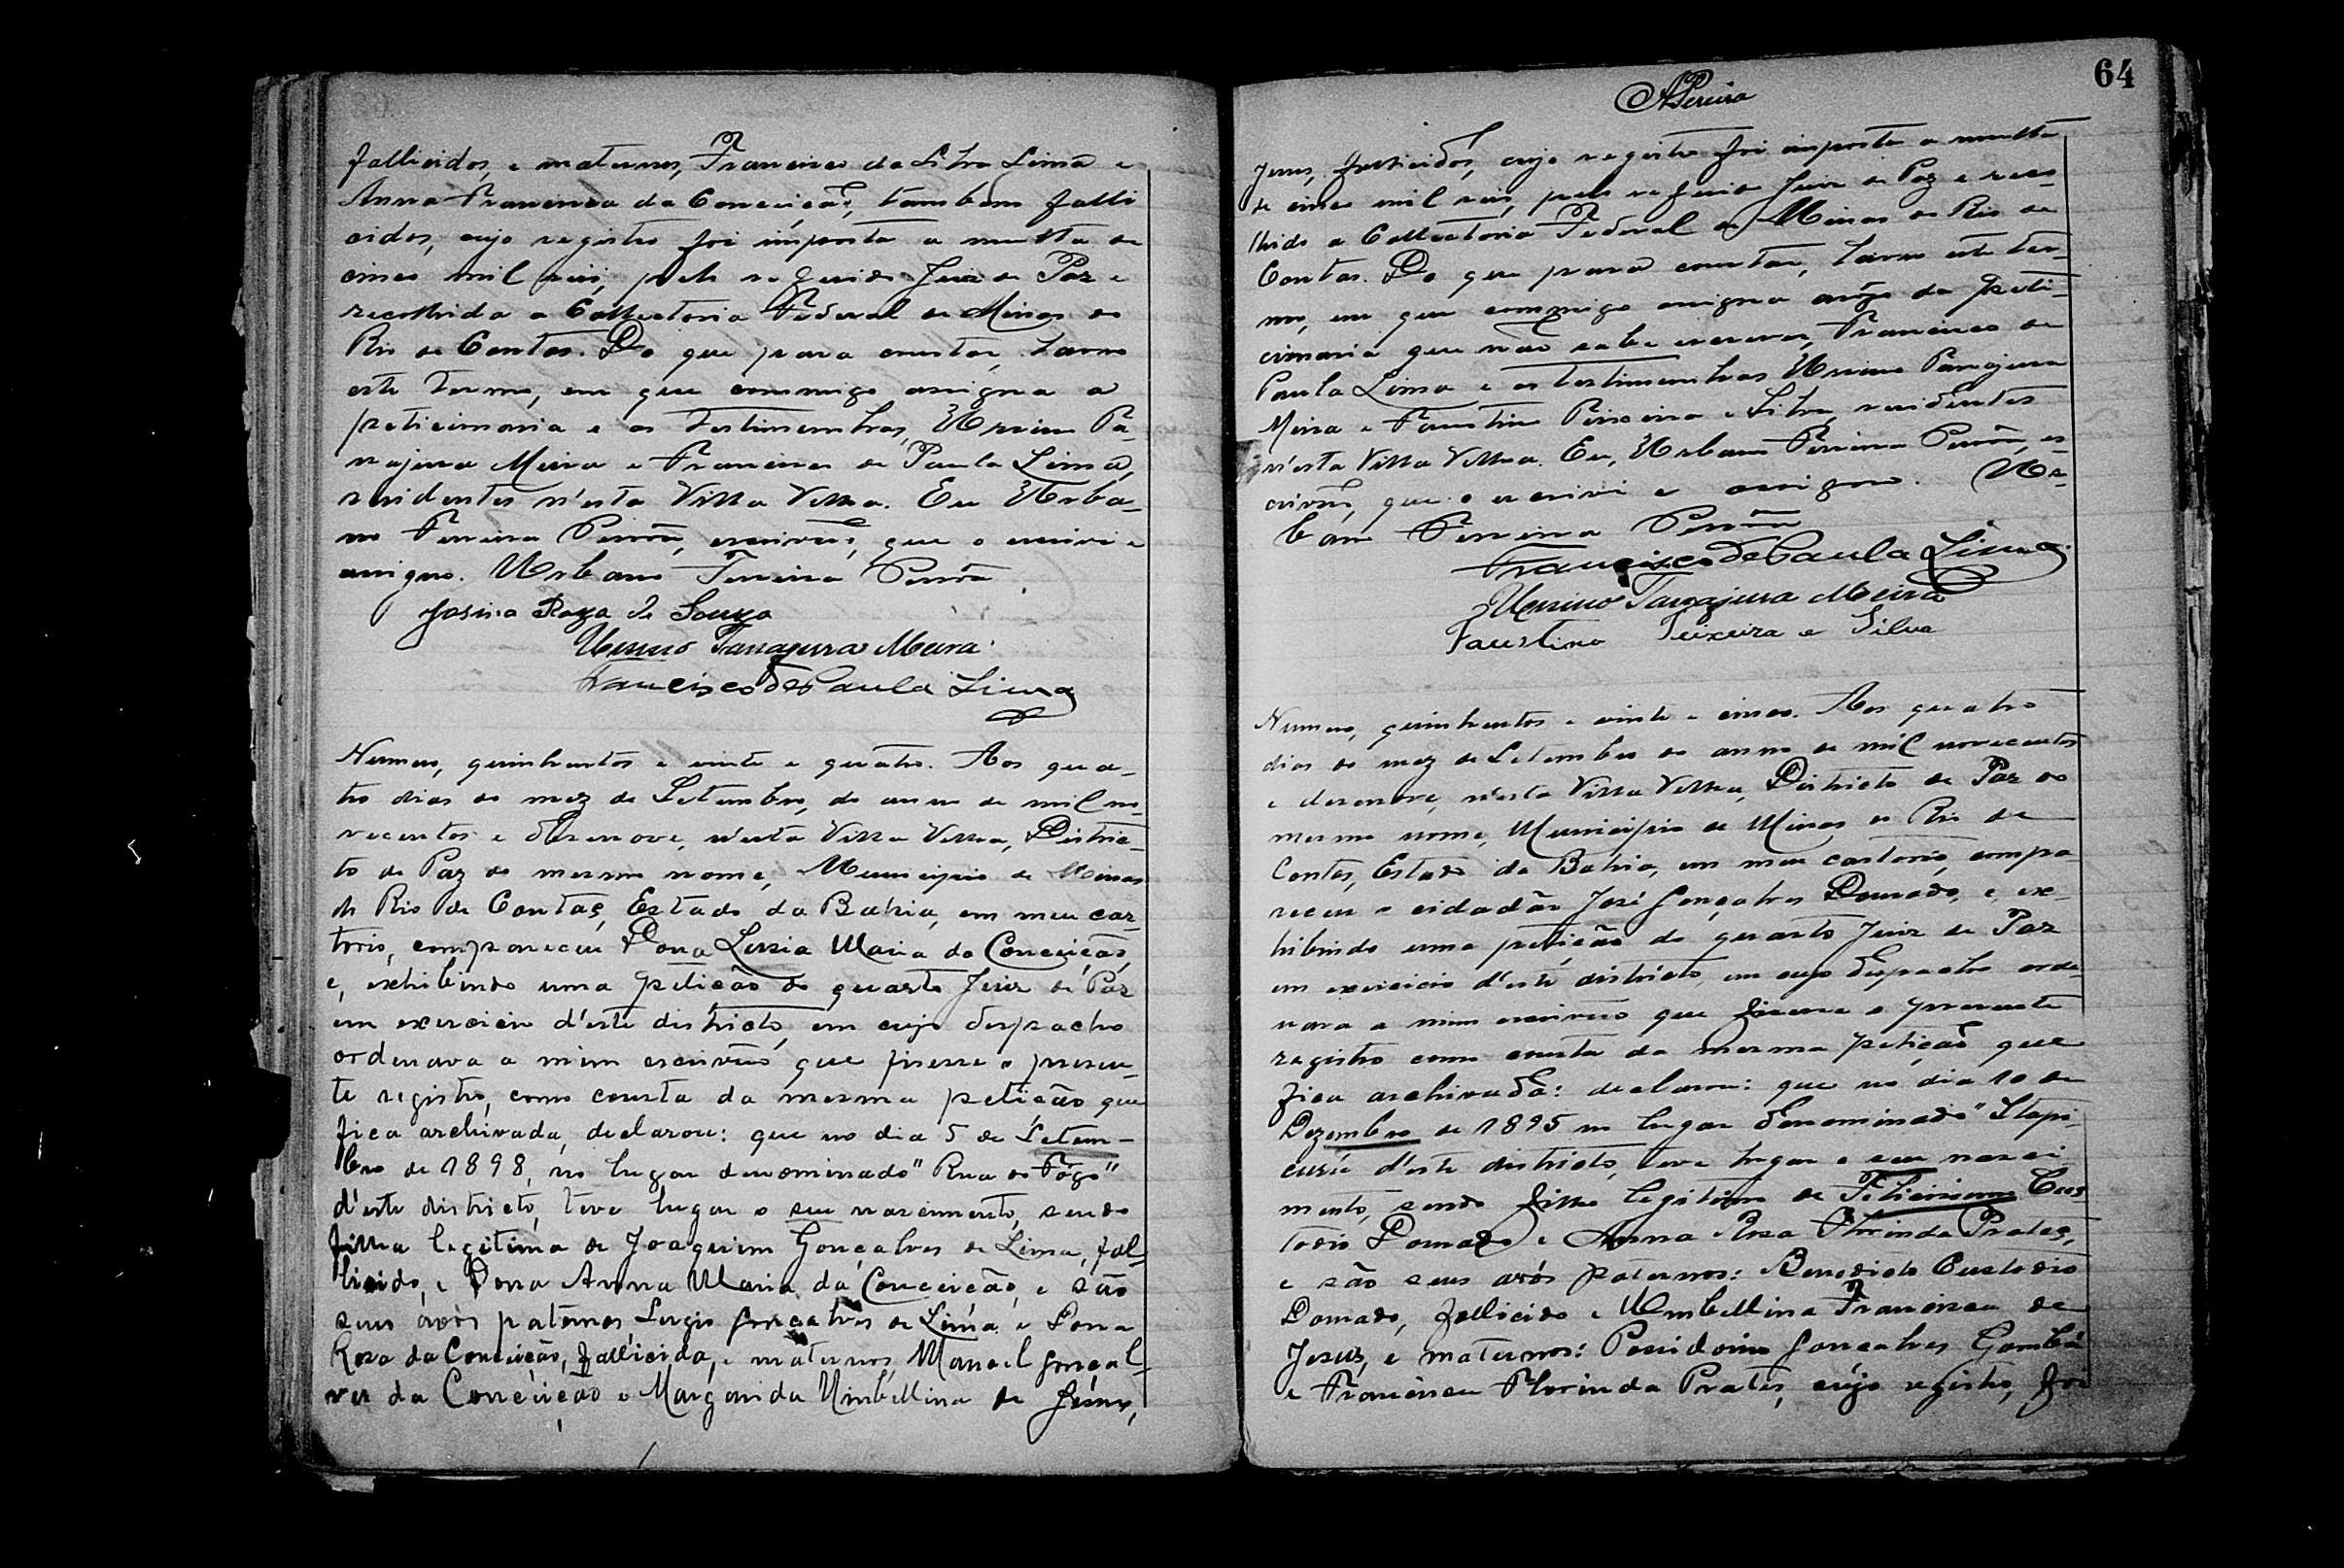 fallicidos, e maternos, Francisco da Silva Lima e
Anna Francisca da Conceição, tambem falli
cidos, cujo registro foi imposta a multa de
cinco mil reis, pelo referido Juiz de Paz e
recolhida a Collectoria Federal de Minas do
Rio de Contas. Do que para constar, lavro
este termo, em que commigo assigna a
peticionaria e as testimunhas, Ursino Ta-
najura Meira e Francisco de Paula Lima,
residentes n'esta Villa Velha. Eu Urba-
no Ferreira, escrivão, que o escrivi e
assigno. Urbano Ferreira
Josina Roza de Souza
Ursino Tanajura Meira
Francisco de Paula Lima
Numero, quinhentos e vinte e quatro. Aos qua-
tro dias do mez de Setembro, do anno de mil no-
vecentos e desenove, n'esta Villa Velha, Distric-
to de Paz do mesmo nome, Municipio de Minas
do Rio de Contas, Estado da Bahia, em meu car-
torio, compareceu Dona Luzia Maria da Conceição,
e, exhibindo uma petição do quarto Juiz de Paz
em exercicio d'este districto, em cujo despacho
ordenava a mim escrivão que fizesse o presen-
te registro, como consta da mesma petição que
fica archivada, declarou: que no dia 5 de Setem-
bro de 1898, no lugar denominado "Rua do Fôgo"
d'este districto, teve lugar o seu nascimento, sendo
filha legitima de Joaquim Gonçalves de Lima, fal-
licido, e Dona Anna Maria da Conceição, e são
seus avós paternos, Sergio Gonçalves de Lima e Dona
Roza da Conceição, fallicida, e maternos, Manoel Gonçal-
ves da Conceição e Margarida Umbellina de Jesus,
64
APereira
Jesus, fallicidos, cujo registro foi imposta a multa
de cinco mil reis, pelo referido Juiz de Paz e reco-
lhido a Collectoria Federal de Minas do Rio de
Contas. Do que para constar, lavro este ter-
mo, em que commigo assigna arôgo da peti-
cionaria que não sabe escrever, Francisco de
Paula Lima e as testimunhas Ursino Tanajura
Meira e Faustino Teixeira e Silva, residentes
n'esta Villa Velha. Eu, Urbano Ferreira, es-
crivão, que o escrivi e assigno. Ur-
bano Ferreira
Francisco de Paula Lima
Ursino Tanajura Meira
Faustino Teixeira e Silva
Numero, quinhentos e vinte e cinco. Aos quatro
dias do mez de Setembro do anno de mil novecentos
e desenove, n'esta Villa Velha, Districto de Paz do
mesmo nome, Municipio de Minas do Rio de
Contas, Estado da Bahia, em meu cartorio, compa-
receu o cidadão José Gonçalves Dourado, e, ex-
hibindo uma petição do quarto Juiz de Paz
em exercicio d'este districto, em cujo despacho orde-
nava a mim escrivão que fizesse o presente
registro como consta da mesma petição que
fica archivada: declarou: que no dia 10 de
Dezembro de 1895 no lugar denominado "Itapi-
curú d'este districto, teve lugar o seu nasci
mento, sendo filho legitimo de Feliciano Cus
todio Dourado e Anna Rosa Florinda Prates,
e são seus avós paternos: Benedicto Custodio
Dourado, fallicido e Umbellina Francisca de
Jesus, e maternos: Possidonio Gonçalves
e Francisca Florinda Prates, cujo registro, foi